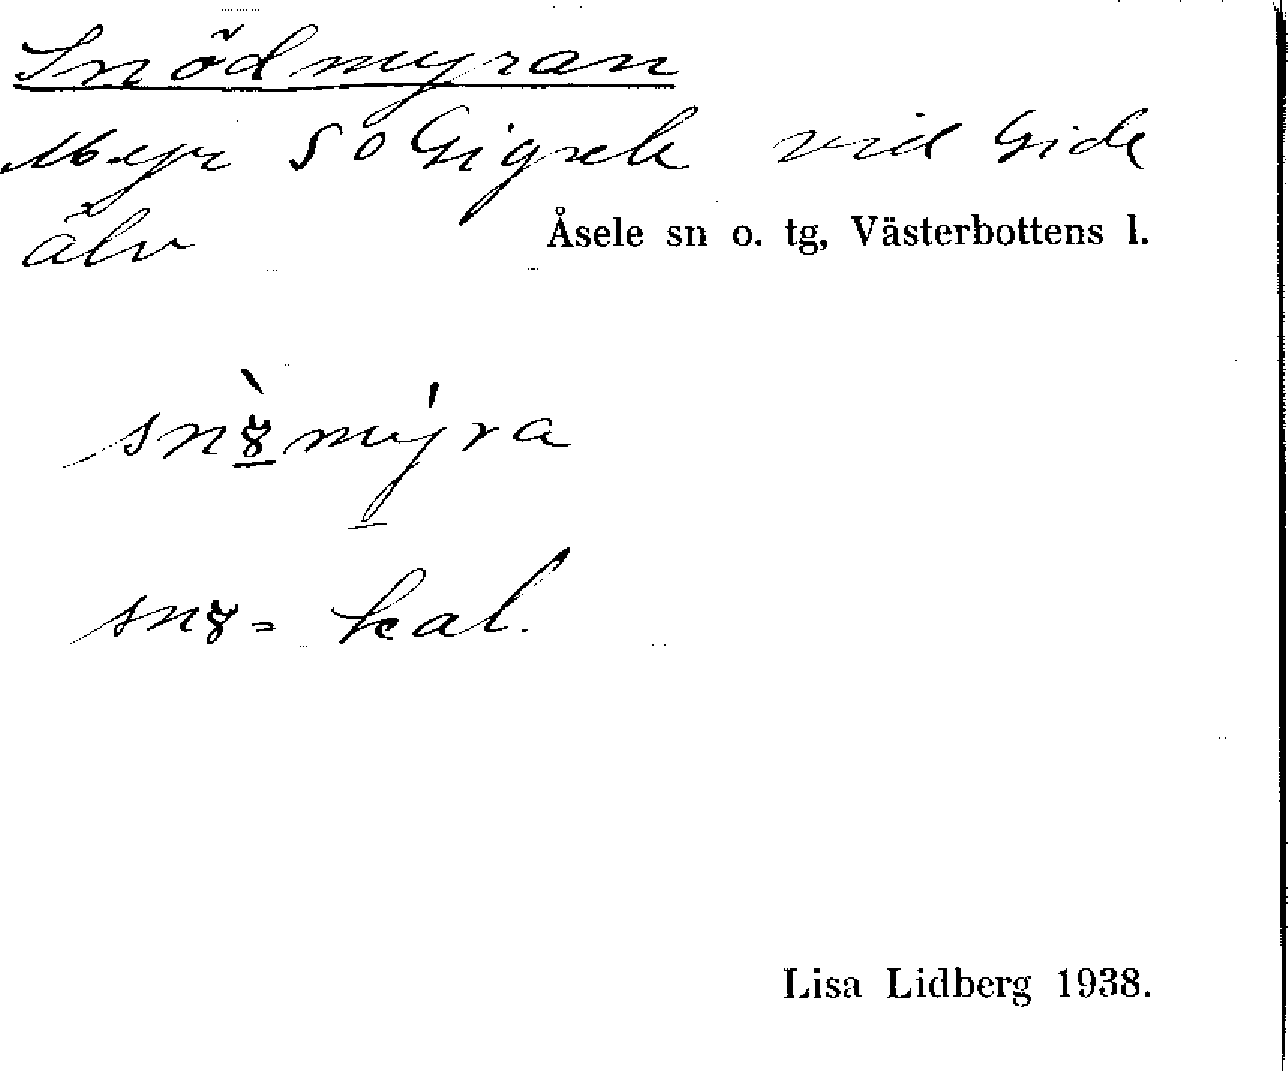 Snödmyran
Myr S ö Gigsele vid Gide
älv
Åsele sn o. tg, Västerbottens l.
snꝏ̀mýra
snꝏ = kal.
Lisa Lidberg 1938.